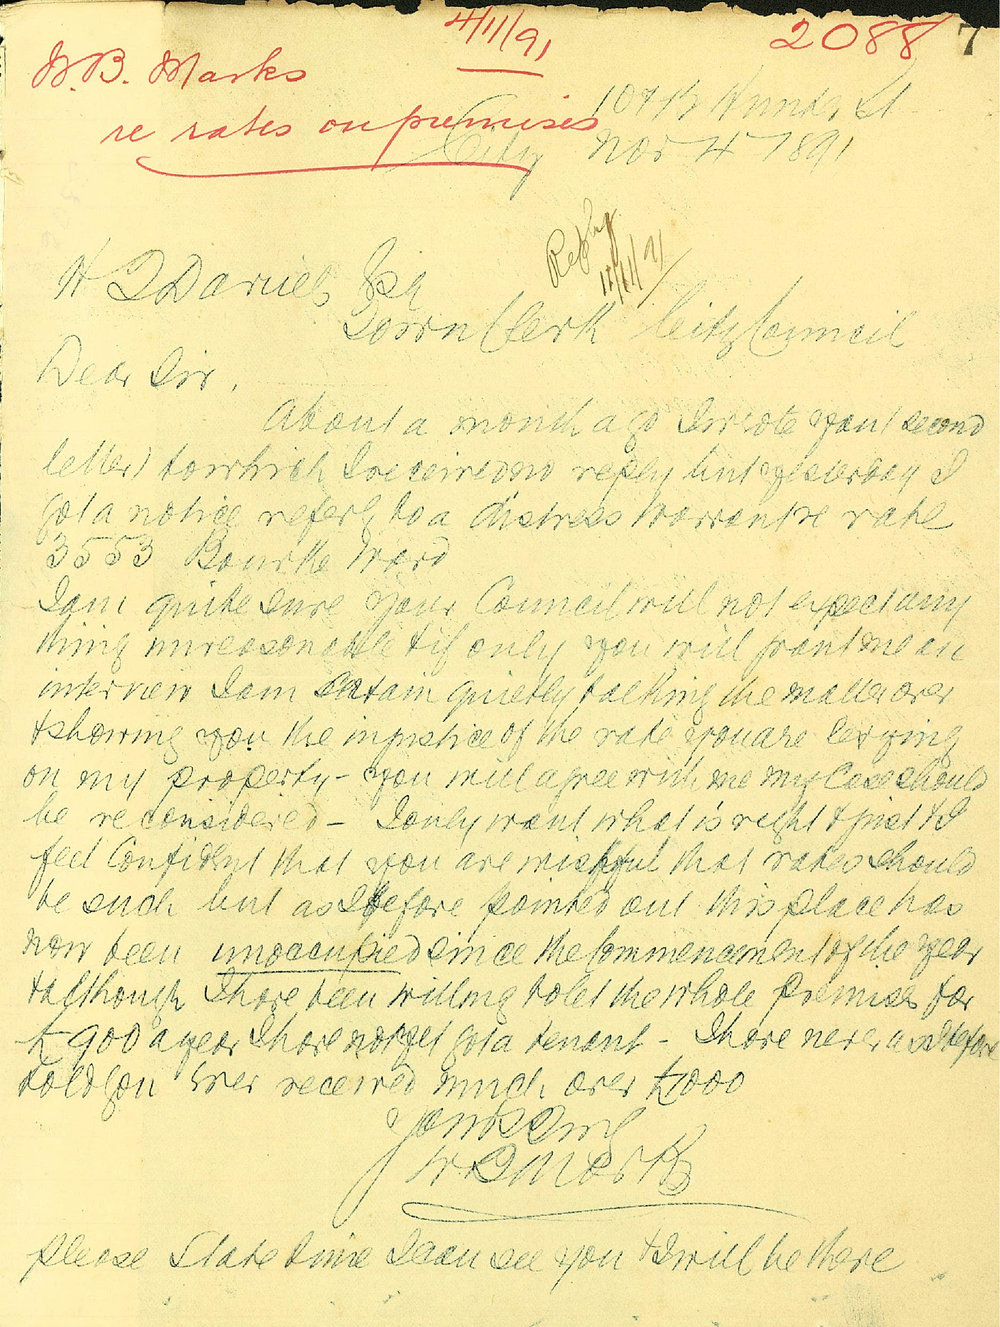 4/11/91
2088
7
W.B. Marks
re rates on premises
107 Hunter St
City Nov 4 1891
Reply
11/11/91
H J Daniels Esq
Town Clerk City Council
Dear Sir,
About a month ago I wrote you (second
letter) to which I received no reply but yesterday I
got a notice referg to a distress warrant re rate
3553 Bourke Ward
I am quite sure your Council will not expect any
thing unreasonable & if only you will grant me an
interview I am certain quietly talking the matter over
& showing you the injustice of the rate you are levying
on my property - you will agree with me my case should
be reconsidered - I only want what is right & just & I
feel confident that you are wishful that rates should
be such but as I before pointed out this place has
now been unoccupied since the commencement of the year
& although I have been willing to let the whole premises for
£900 a year I have not yet got a tenant - I have never as I before
told you ever received much over £1000
Yours Truly
W B Marks
please state time I can see you & I will be there